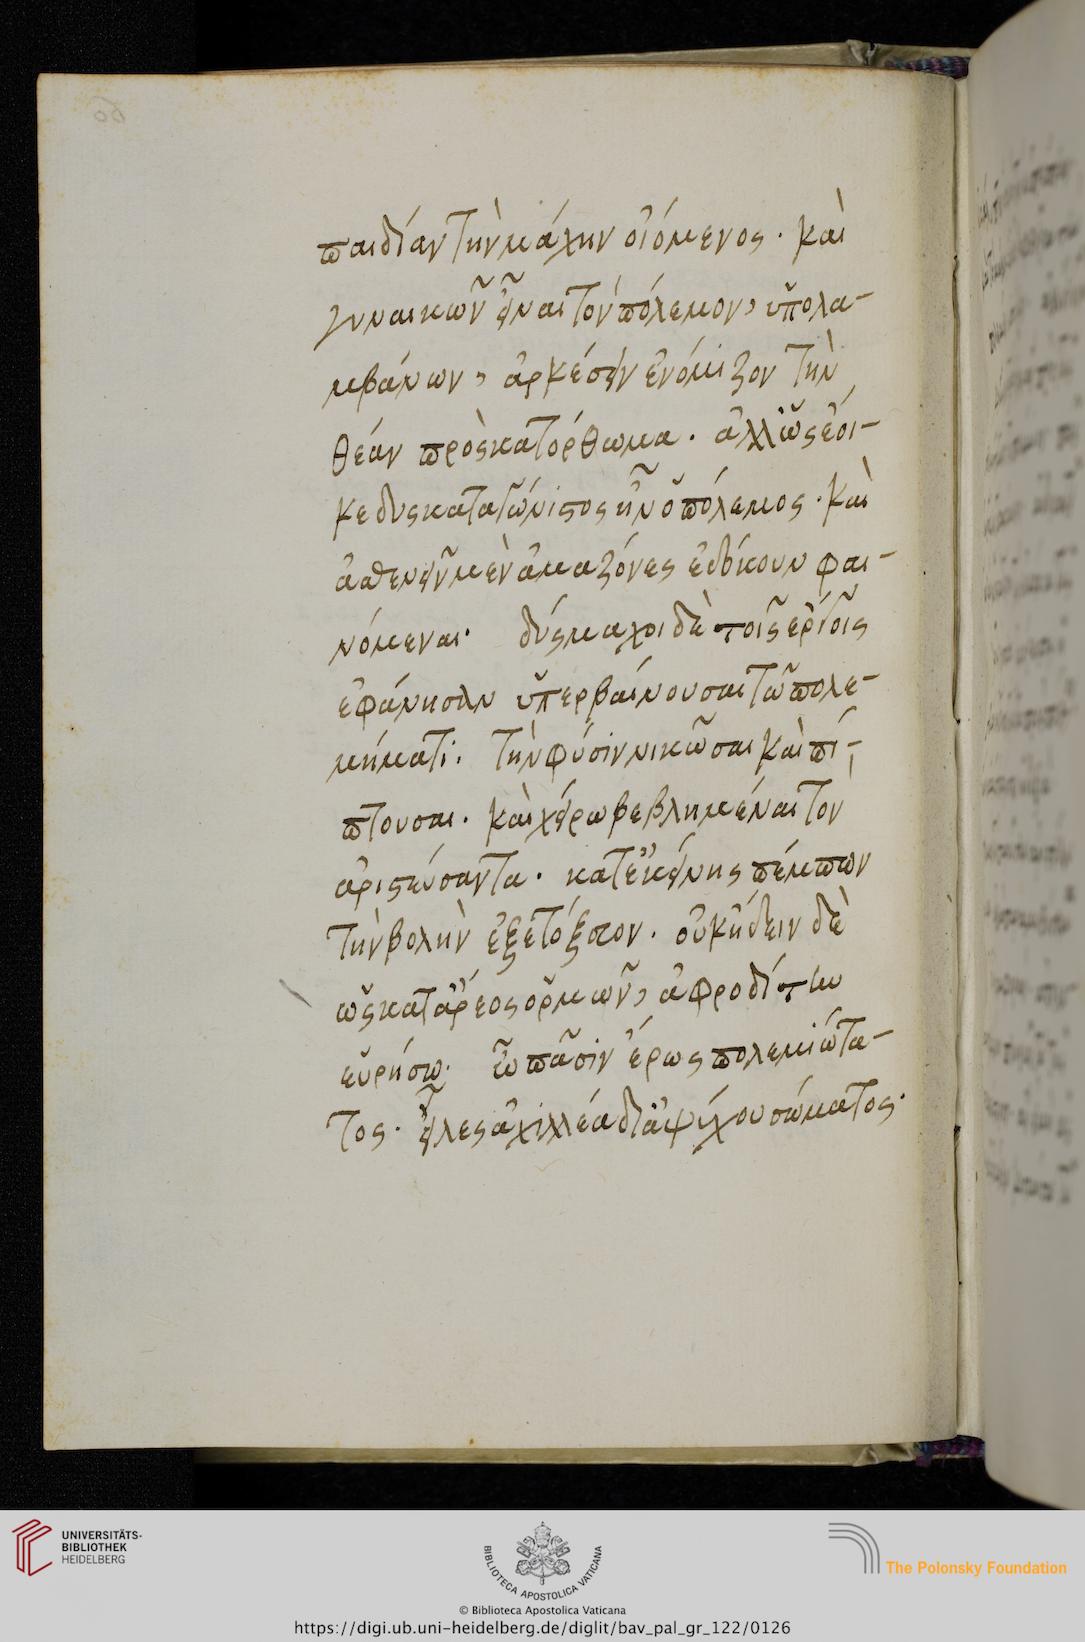 παιδίαν τὴν μάχην οἰόμενος. καὶ
γυναικῶν εἶναι τὸν πόλεμον, ὑπολα-
μβάνων, ἀρκέσειν ἐνόμιζον τὴν
θέαν πρὸς κατόρθωμα. ἀλλ' ὡς ἔοι-
κε δυσκαταγώνιστος ἦν ὁ πόλεμος. καὶ
ἀσθενεῖν μὲν ἀμαζόνες ἐδόκουν φαι-
νόμεναι. δύσμαχοι δὲ τοῖς ἔργοις
ἐφάνησαν ὑπερβαίνουσαι τῶ πολε-
μήματι. τὴν φύσιν νικῶσαι καὶ πί-
πτουσαι. καὶ χείρω βεβλημέναι τὸν
ἀριστεύσαντα. κατ' ἐκείνης πέμπων
τὴν βολὴν ἐξετόξευον. οὐκ ἤδειν δὲ
ὡς κατ' ἄρεος ὁρμῶν, ἀφροδίτην
εὑρήσω. ὦ πᾶσιν ἔρως πολεμιώτα-
τος. εἷλες ἀχιλλέα δι' ἀψύχου σώματος.
60
UNIVERSITÄTS-
BIBLIOTHEK
HEIDELBERG
BIBLIOTECA APOSTOLICA VATICANA
The Polonsky Foundation
© Biblioteca Apostolica Vaticana
https://digi.ub.uni-heidelberg.de/diglit/bav_pal_gr_122/0126